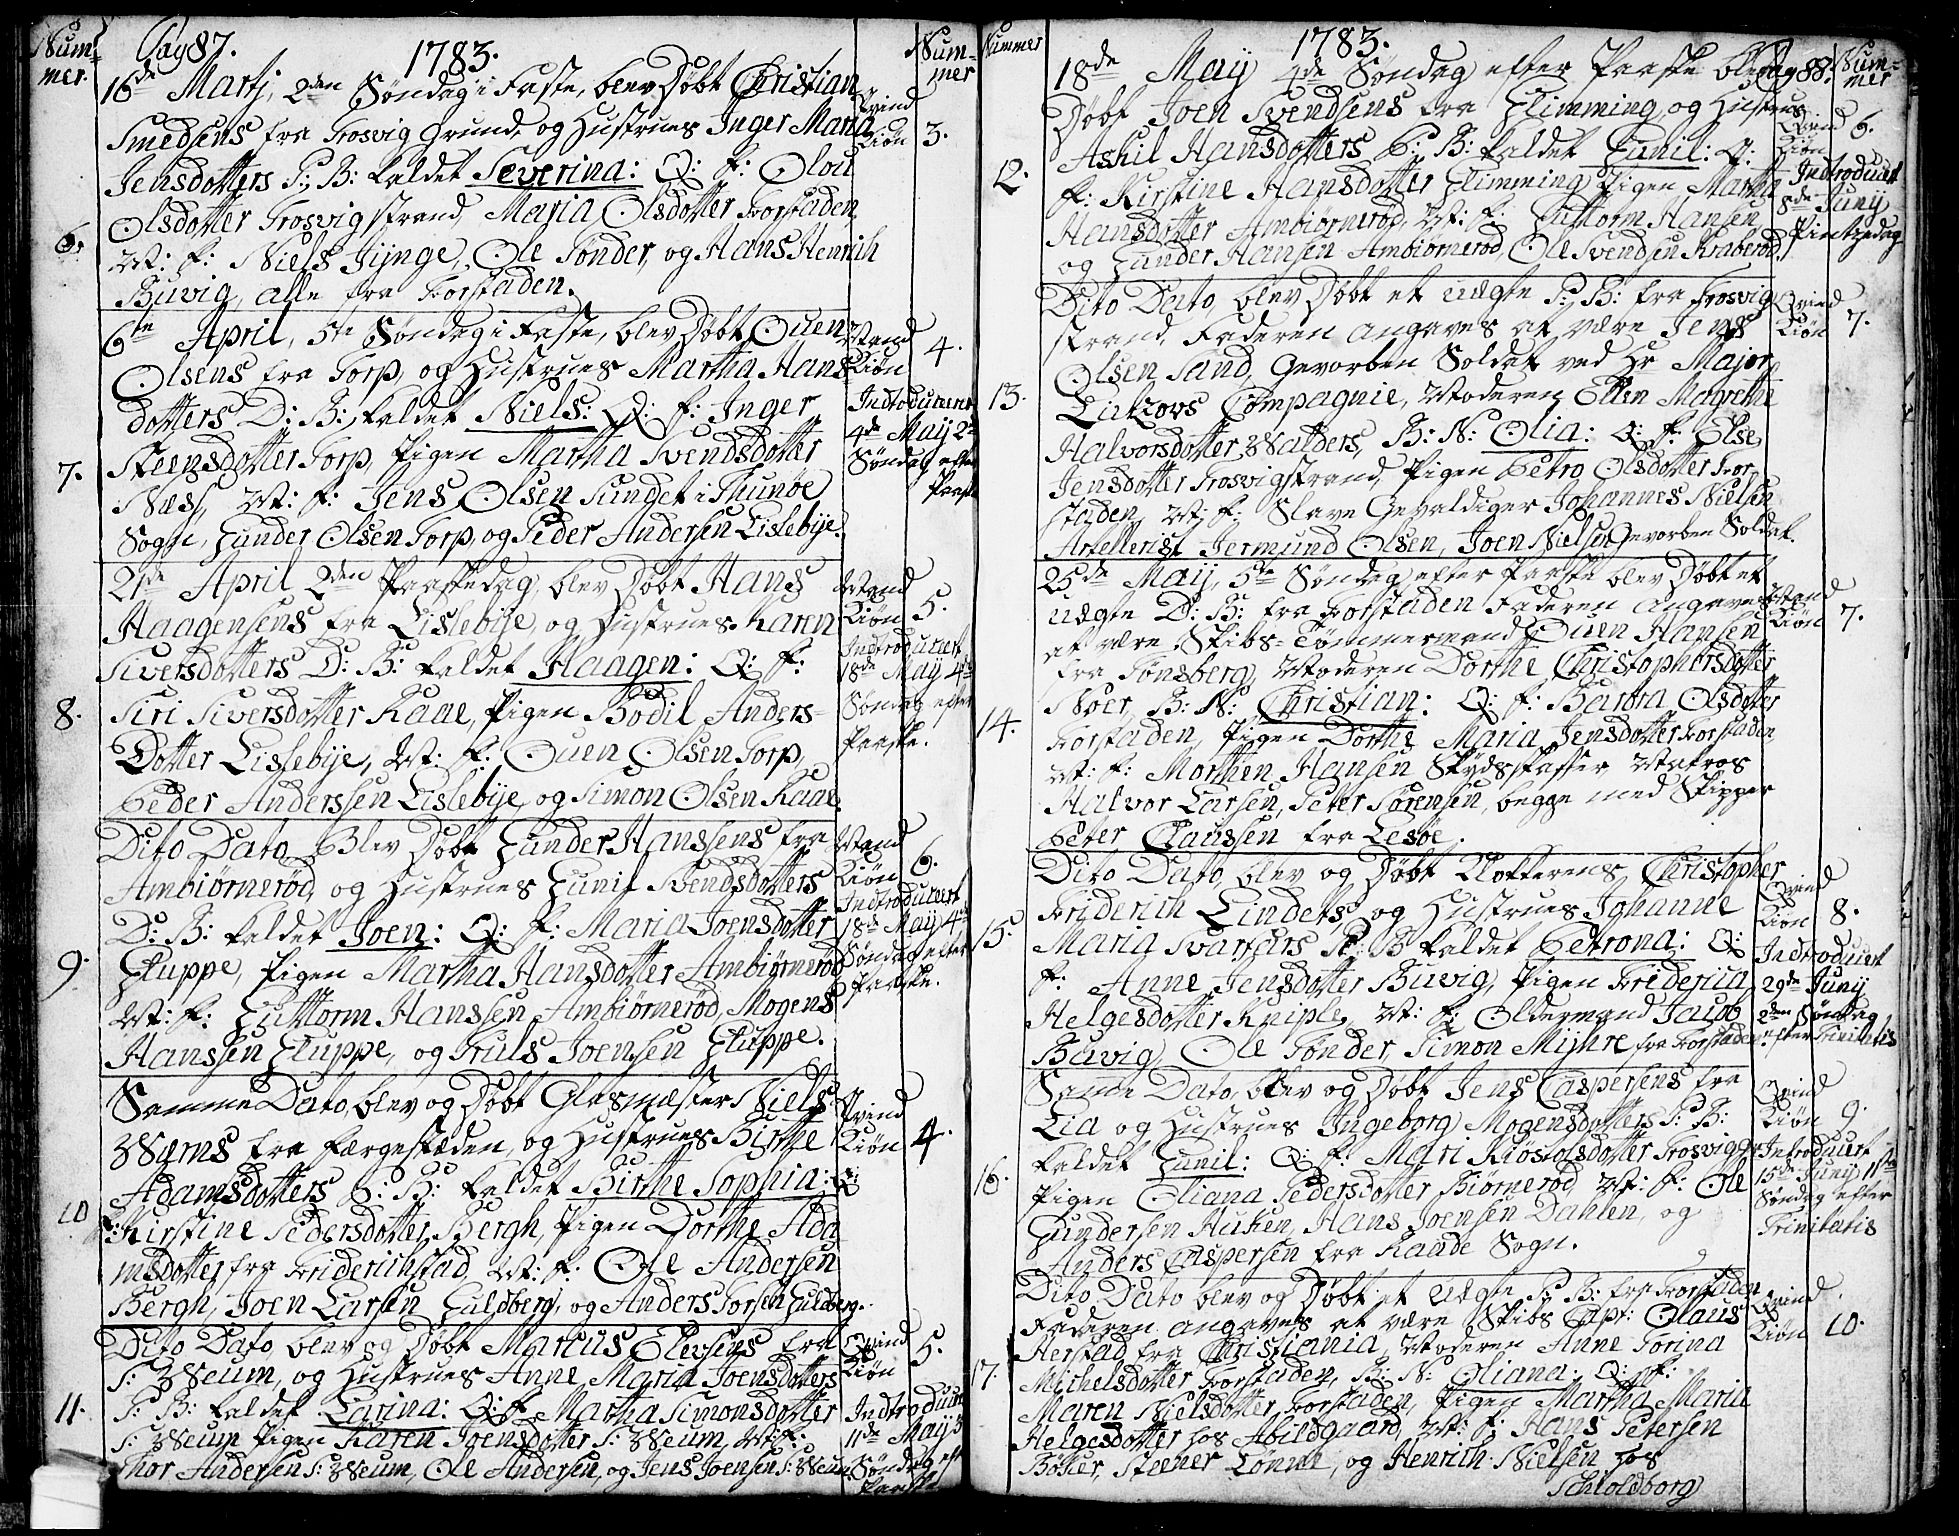 Num-
mer.
Pag 87.
1783.
Num-
mer
16de Martj, 2den Søndag i Faste, blev Døbt Christian
Smedsens fra Trosvig Grund, og Hustrues Inger Maria
Jensdotters P: B: kaldet Severina: Q: F: Olou
Olsdotter Trosvigstrand, Maria Olsdotter Forstaden
M: F: Niels Jijnge, Ole Tønder, og Hans Henrich
Buvig, alle fra Forstaden.
6.
Qvind
Kiøn
3.
6te April, 5te Søndag i Faste, blev Døbt Ouen
Olsens fra Torp, og Hustrues Martha Hans-
dotters D: B: kaldet Niels: Q: F: Inger
Steensdotter Torp, Pigen Martha Svendsdotter
Næss, M: F: Jens Olsen Sundet i Thunøe
Sogn, Gunder Olsen Torp, og Peder Andersen Lislebije.
7.
Mand
Kiøn
4.
Indtroduceret
4de May 2den
Søndag efter
Paaske
21de April 2den Paaskedag, blev Døbt Hans
Haagensens fra Lislebije, og Hustrues Karen
Siversdotters D: B: kaldet Haagen: Q: F:
Siri Siversdotter Kaae, Pigen Bodil Anders-
Dotter Lislebije, M: F: Ouen Olsen Torp,
Peder Anderssen Lislebije, og Simon Olsen Kaae
8.
Mand
Kiøn
5.
Indtroduceret
18de May 4de
Søndag efter
Paaske.
Dito Dato, Blev Døbt Gunder Hanssens fra
Ambiørnerød, og Hustrues Gunil Svendsdotters
D: B: kaldet Joen: Q: F: Maria Joensdotter
Gluppe, Pigen Martha Hansdotter Ambiørnerød
M: F: Guttorm Hanssen Ambiørnerød, Mogens
Hanssen Gluppe, og Truls Joensen Gluppe.
9.
Mand
Kiøn
6.
Indtroduceret
18de May 4de
Søndag efter
Paaske.
Samme Dato, blev og Døbt Glasmæster Niels
Wærns fra Færgestæden, og Hustrues Birthe
Adamsdotters P: B: kaldet Birthe Sophia: Q:
F: Kirstine Pedersdotter Bergh, Pigen Dorthe Ada
msdotter fra Friderichstad, M: F: Ole Andersen
Bergh, Joen Larsen Guldberg, og Anders Torsen Guldberg.
10
Qvind
Kiøn
4.
Dito Dato, blev og Døbt Marcus Elevsens fra
S: Weum, og Hustrues Anne Maria Joensdotters
P: B: kaldet Larina: Q: F: Martha Simonsdotter
S: Weum Pigen Karen Joensdotter S: Weum, M: F:
Thor Andersen S: Weum, Ole Andersen, og Jens Joensen S: Weum
11.
Qvind
Kiøn
5.
Indtroduceret
11de May 3
Søndag eft
Paaske
Nummer
1783.
Pag 88.
Num-
mer
18de May 4de Søndag efter Paaske blev
Døbt Joen Svendsens fra Glimming, og Hustrues
Ashil Hansdotters P: B: kaldet Gunil: Q:
F: Kirstine Hansdotter Glimming Pigen Martha
Hansdotter Ambiørnerød, M: F: Guttorm Hansen
og Gunder Hansen Ambiørnerød, Ole Svendsen Kraberød.
12.
Qvind
Kiøn
6.
Indtroducert
8de Junij
Pintzedag
Dito Dato, blev Døbt et uægte P: B: fra Trosvig
strand, Faderen angaves at være Jens
Olsen Sand, Gevorben Soldat ved Hr Major
Lützovs Compagnie, Moderen Ellen Magrethe
Halvorsdotter Walders, B: N: Olia: Q: F: Else
Jensdotter Trosvigstrand, Pigen Petro Olsdotter For-
staden, M: F: Slave Gevaldiger Johannes Nielsen
Artellerist Jermund Olsen, Joen Nielsen Gevorben Soldat.
13.
Qvind
Kiøn
7.
25de May, 5te Søndag efter Paaske blev Døbt et
uægte D: B: fra Forstaden Faderen angaves
at være Skibs-Tømmermand Ouen Hansen
fra Tønsberg, Moderen Dorthe Christophersdotter
Moer, B: N: Christian: Q: F: Barbra Olsdotter
Forstaden, Pigen Dorthe Maria Jensdotter Forstaden,
M: F: Morthen Hansen Skydsskaffer Matros
Halvor Larsen, Peter Sørensen, begge med Skipper
Peter Claussen fra Lesøe.
14.
Mand
Kiøn
7.
Dito Dato, blev og Døbt Klokkerens Christopher
Friderich Linders, og Hustrues Johanne
Maria Svartzers P: B: kaldet Petrona: Q:
F: Anne Jensdotter Buvig, Pigen Friderica
Helgesdotter Kniple, M: F: Oldermand Jacob
Buvig, Ole Tønder, Simon Mijhre fra Forstaden
15.
Qvind
Kiøn
8.
Indtroducert
29de Junij
2den Søndag
efter Trinitatis
Samme Dato, blev og Døbt Jens Caspersens fra
Lia og Hustrues Ingeborg Mogensdotters P: B:
kaldet Gunil: Q: F: Mari Kiøstolsdotter Trosvig gr
Pigen Oliana Pedersdotter Biørnerød, M: F: Ole
Gundersen Huken, Hans Joensen Dahlen, og
Anders Caspersen fra Raade Sogn.
16.
Qvind
Kiøn
9.
Introducert
15de Junij 1ste
Søndag efter
Trinitatis
Dito Dato blev og Døbt et uægte P: B: fra Forstaden
Faderen angaves at være Skibs Capt: Claus
Herstad fra Christiania, Moderen Anne Torina
Michelsdotter Forstaden, B: N: Oliana: Q: F:
Maren Nielsdotter Forstaden, Pigen Martha Maria
Helgesdotter hos Abildgaard, M: F: Hans Petersen
Bøker, Steener Lønne, og Henrich Nielsen hos
Schioldborg
17.
Qvind
Kiøn
10.